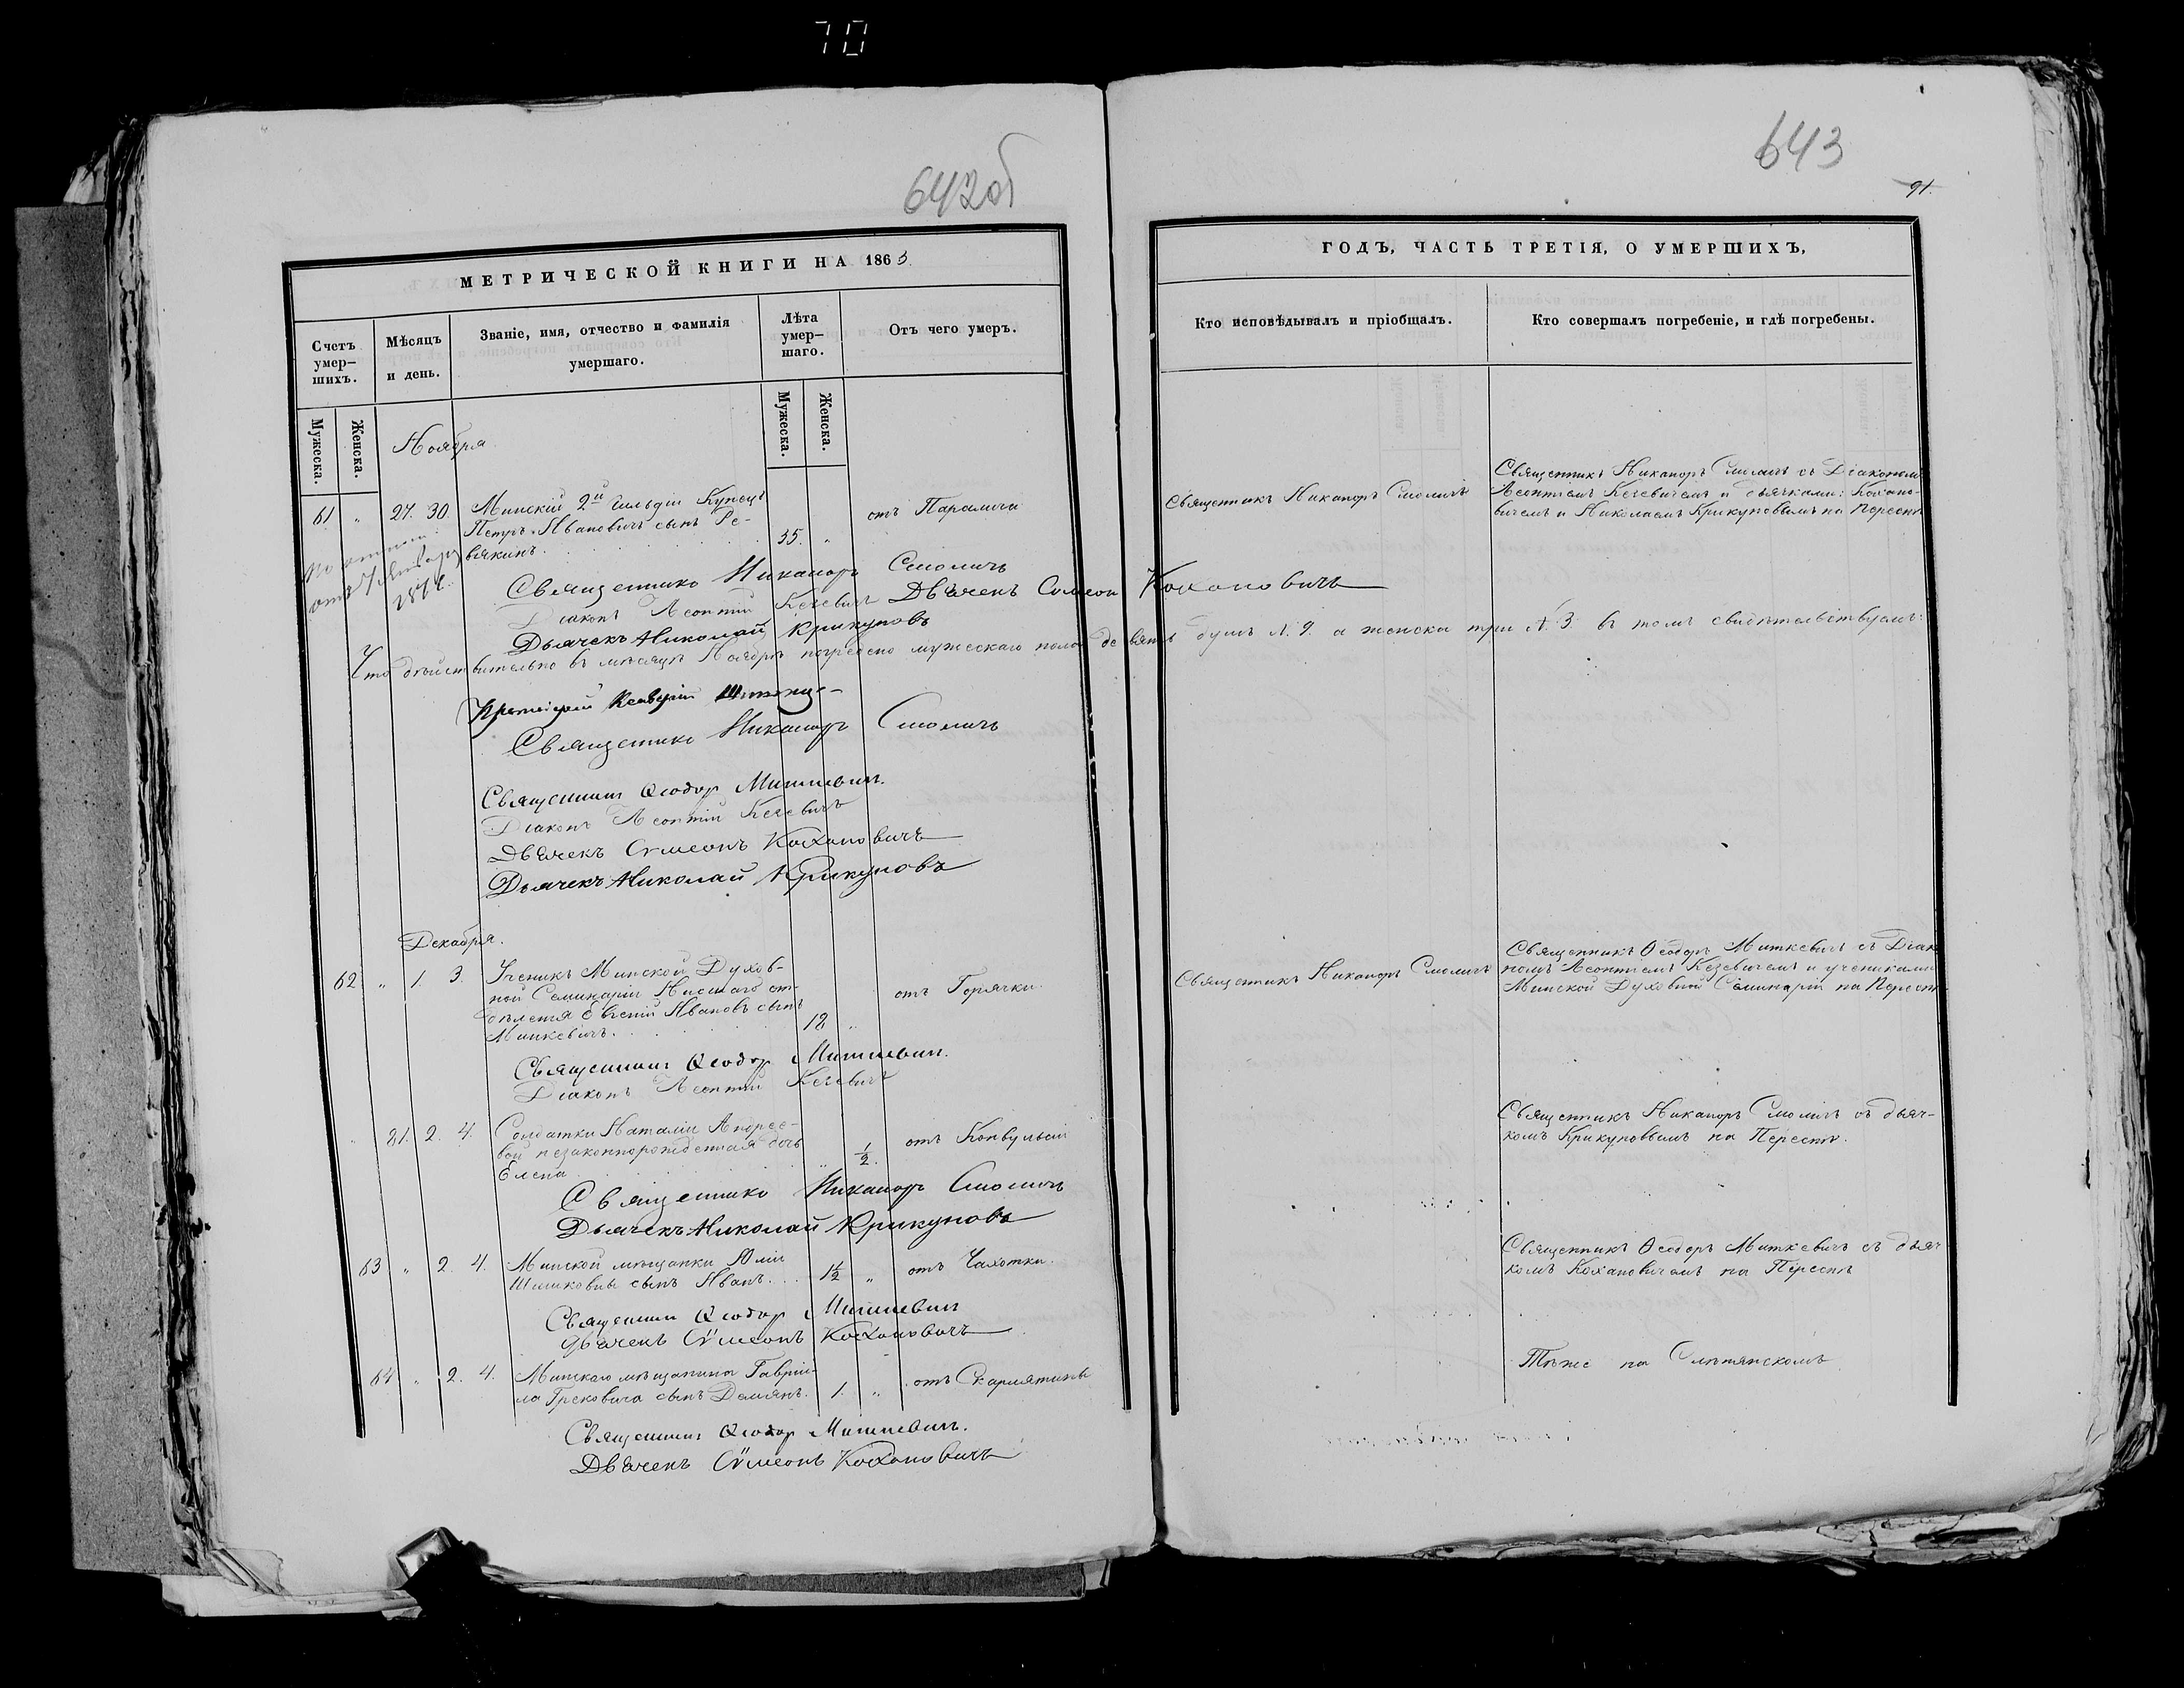 70
642об
643
91.
МЕТРИЧЕСКОЙ КНИГИ НА 1863
ГОДЪ, ЧАСТЬ ТРЕТІЯ, О УМЕРШИХЪ,
Счетъ умер-
шихъ.
Мѣсяцъ
и день.
Званіе, имя, отчество и фамилія
умершаго.
Лѣта
умер-
шаго.
Отъ чего умеръ.
Кто исповѣдывалъ и пріобщалъ.
Кто совершалъ погребеніе, и гдѣ погребены.
Мужеска.
Женска.
Мужеска.
Женска.
Ноября
61 " 27. 30. Минскій 2й Гильдіи Купецъ
Петръ Ивановичъ сынъ Ре-
вякинъ. 35. "
отъ Паралича
Священникъ Никаноръ Смоличъ
Священникъ Никаноръ Смоличъ съ Діакономъ
Леонтіемъ Кезевичемъ и дьячками: Кохано-
вичемъ и Николаемъ Крикуновымъ на Переспѣ
Священникъ Никаноръ Смоличъ
Діаконъ Леонтій Кезевичъ Дьячекъ Симеонъ Кохановичъ
Дьячекъ Николай Крикуновъ
Что дѣйствительно въ мѣсяцѣ Ноябрѣ погребено мужескаго пола девять душъ N. 9. а женска три N. 3. въ томъ свидѣтельствуемъ:
Протоіерей
Священникъ Никаноръ Смоличъ
Священникъ Ѳеодоръ Миткевичъ.
Діаконъ Леонтій Кезевичъ
Дьячекъ Сѵмеонъ Кохановичъ
Дьячекъ Николай Крикуновъ
Декабря.
62 " 1. 3. Ученикъ Минской Духов-
ной Семинаріи Нисшаго от-
дѣленія Евгеній Ивановъ сынъ
Минкевичъ. 18 "
отъ Горячки.
Священникъ Никаноръ Смоличъ
Священникъ Ѳеодоръ Миткевичъ съ Діако-
номъ Леонтіемъ Кезевичемъ и учениками
Минской Духовной Семинаріи на Переспѣ
Священникъ Ѳеодоръ Миткевичъ.
Діаконъ Леонтій Кезевичъ
" 21. 2. 4. Солдатки Наталіи Андрее-
вой незаконнорожденная дочь
Елена " 1/2.
отъ Конвульсій
Священникъ Никаноръ Смоличъ съ дьяч-
комъ Крикуновымъ на Переспѣ.
Священникъ Никаноръ Смоличъ
Дьячекъ Николай Крикуновъ
63 " 2. 4. Минской мѣщанки Юліи
Шишковны сынъ Иванъ. 1 1/2 "
отъ Чахотки.
Священникъ Ѳеодоръ Миткевичъ съ дьяч-
комъ Кохановичемъ на Переспѣ
Священникъ Ѳеодоръ Миткевичъ
Дьячекъ Сѵмеонъ Кохановичъ
64 " 2. 4. Минскаго мѣщанина Гаврii-
ла Грековича сынъ Демянъ. 1. "
отъ Скарлятины
Тѣже на Слѣпянскомъ
Священникъ Ѳеодоръ Миткевичъ.
Дьячекъ Сѵмеонъ Кохановичъ